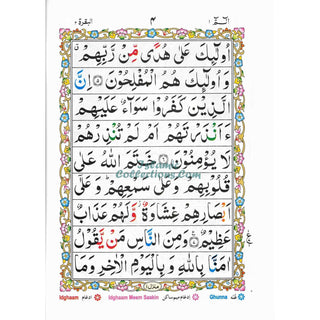 البقرة ٢
٤
الٓمّٓ ١
اُولٰٓئِكَ عَلٰى هُدًى مِّنْ رَّبِّهِمْ
وَاُولٰٓئِكَ هُمُ الْمُفْلِحُوْنَ ۝ اِنَّ
الَّذِيْنَ كَفَرُوْا سَوَآءٌ عَلَيْهِمْ
ءَاَنْذَرْتَهُمْ اَمْ لَمْ تُنْذِرْهُمْ
لَا يُؤْمِنُوْنَ ۝ خَتَمَ اللّٰهُ عَلٰى
قُلُوْبِهِمْ وَعَلٰى سَمْعِهِمْ ؕ وَعَلٰٓى
اَبْصَارِهِمْ غِشَاوَةٌ وَّلَهُمْ عَذَابٌ
عَظِيْمٌ ۝ وَمِنَ النَّاسِ مَنْ يَّقُوْلُ
اٰمَنَّا بِاللّٰهِ وَبِالْيَوْمِ الْاٰخِرِ وَمَا
Collections.com
Idghaam ادغام
Idghaam Meem Saakin ادغام میم ساکن
Ghunna غنه